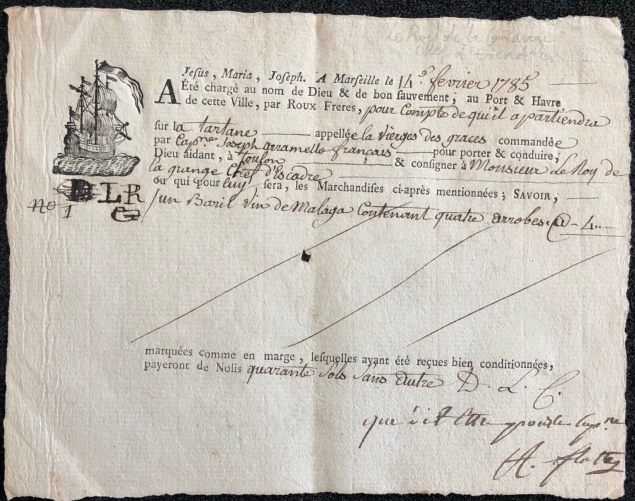 Jesus, Maria, Joseph. A Marseille le 14.e fevrier 1785
A Été chargé au nom de Dieu & de bon sauvement, au Port & Havre
de cette Ville, par Roux Freres, pour Compte de qu'il apartiendra
sur la tartane appellée la vierges des graces commandée
par Capne. Joseph français pour porter & conduire,
Dieu aidant, à Toulon & consigner à Monsieur Le Roy de
la grange Chef d'Escadre
ou qui pour luy, sera, les Marchandises ci-après mentionnées ; SAVOIR,
DLR
G
no 1
un Baril vin de Malaga Contenant quatre arrobes 4
marquées comme en marge, lesquelles ayant été reçues bien conditionnées,
payeront de Nolis quarante sols sans autre D. L. C.
pour le Capne
A.